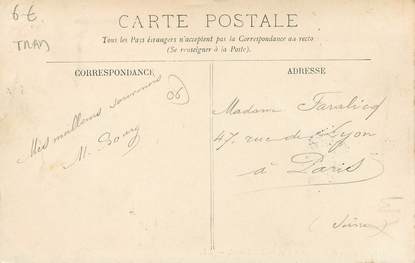 6€
TRAM
CARTE POSTALE
Tous les Pays étrangers n'acceptent pas la Correspondance au recto
(Se renseigner à la Poste).
CORRESPONDANCE
06
Mes meilleurs souvenirs
M. Bourg
ADRESSE
Madame Faralicq
47, rue de Lyon
à Paris
(Seine)